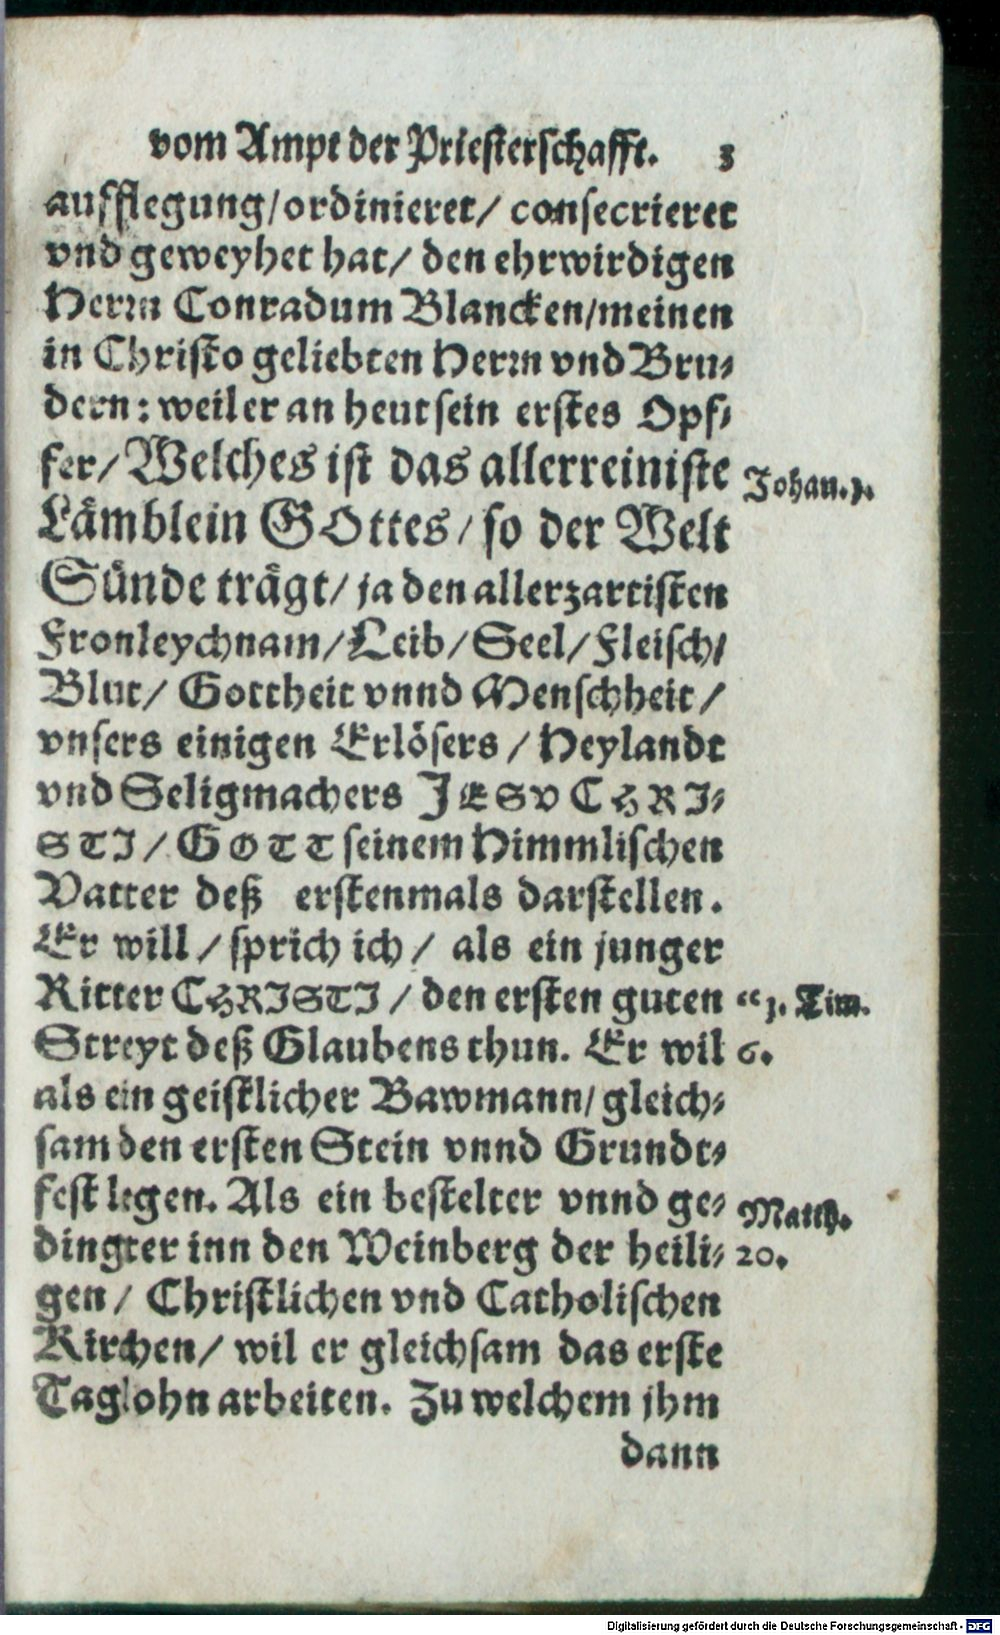 vom Ampt der Priesterschafft. 3
aufflegung/ordinieret/ consecrieret
vnd geweyhet hat/ den ehrwirdigen
Herrn Conradum Blancken/meinen
in Christo geliebten Herrn vnd Bru⸗
dern: weil er an heut sein erstes Opf⸗
fer/ Welches ist das allerreiniste
Johan. 1.
Lämblein GOttes/ so der Welt
Sünde trägt/ ja den allerzartisten
Fronleychnam/ Leib/ Seel/ Fleisch/
Blut/ Gottheit vnnd Menschheit/
vnsers einigen Erlösers/ Heylandt
vnd Seligmachers JESV CHRI⸗
STI/ GOTT seinem Himmlischen
Vatter deß erstenmals darstellen.
Er will/ sprich ich/ als ein junger
Ritter CHRISTI/ den ersten guten
“1. Tim.
Streyt deß Glaubens thun. Er wil
6.
als ein geistlicher Bawmann/ gleich⸗
sam den ersten Stein vnnd Grundt⸗
fest legen. Als ein bestelter vnnd ge⸗
Matth.
dingter inn den Weinberg der heili⸗
20.
gen/ Christlichen vnd Catholischen
Kirchen/ wil er gleichsam das erste
Taglohn arbeiten. Zu welchem jhm
dann
Digitalisierung gefördert durch die Deutsche Forschungsgemeinschaft - DFG